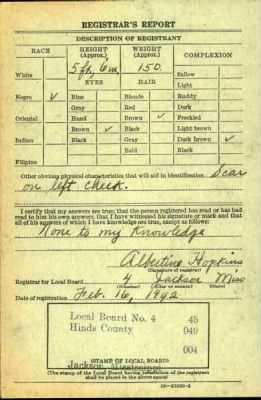 REGISTRAR'S REPORT
DESCRIPTION OF REGISTRANT
RACE HEIGHT (Approx.) WEIGHT (Approx.) COMPLEXION
5 ft, 6 in 150
White EYES HAIR Sallow
Light
Negro ✓ Blue Blonde Ruddy
Gray Red Dark
Oriental Hazel Brown ✓ Freckled
Brown ✓ Black Light brown
Indian Black Gray Dark brown ✓
Bald Black
Filipino
Other obvious physical characteristics that will aid in identification Scar
on left cheek.
I certify that my answers are true; that the person registered has read or has had
read to him his own answers; that I have witnessed his signature or mark and that
all of his answers of which I have knowledge are true, except as follows:
None to my knowledge
Albertine Hopkins
(Signature of registrar)
Registrar for Local Board 4 Jackson Miss
(Number) (City or county) (State)
Date of registration Feb. 16, 1942
Local Board No. 4 45
Hinds County 049
004
Jackson Mississippi
(STAMP OF LOCAL BOARD)
(The stamp of the Local Board having jurisdiction of the registrant
shall be placed in the above space)